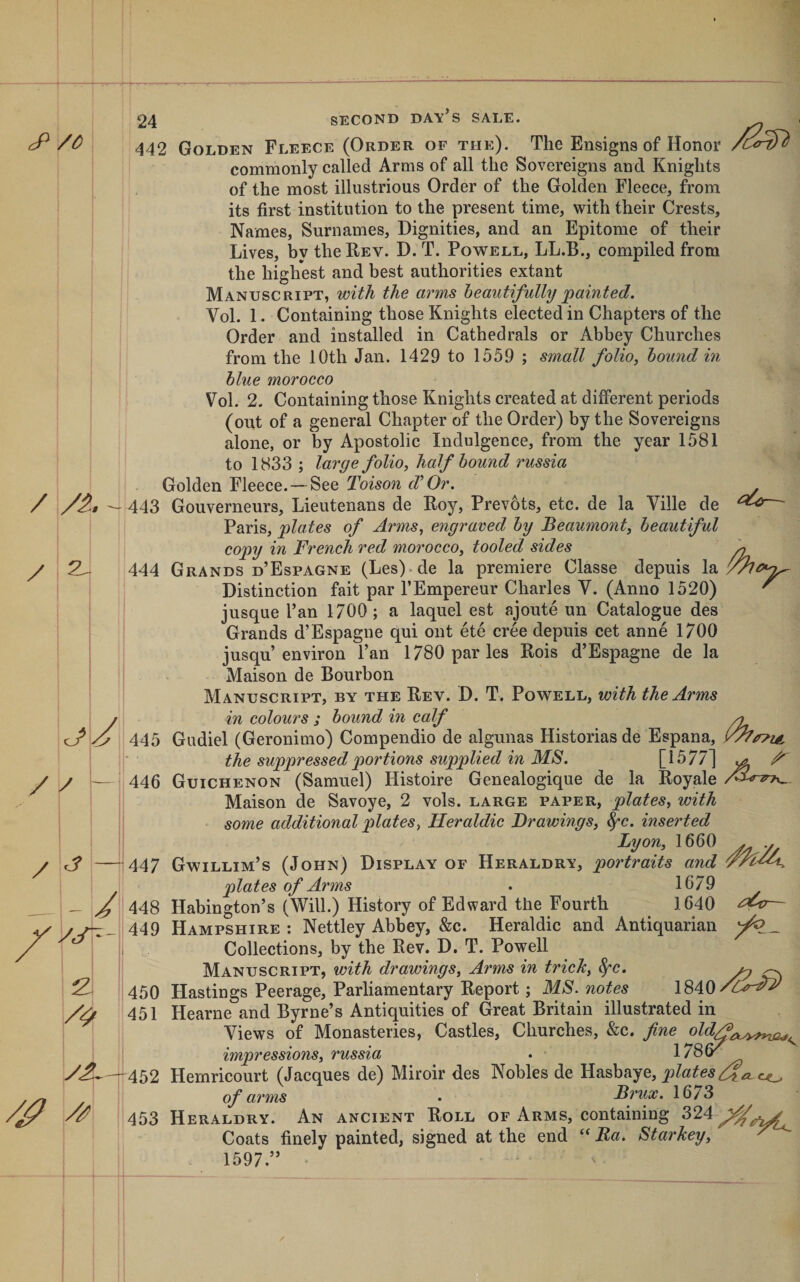 24 SECOND DAY'S SALE.
8 10 442 Golden Fleece (Order of the). The Ensigns of Honor
commonly called Arms of all the Sovereigns and Knights
of the most illustrious Order of the Golden Fleece, from
its first institution to the present time, with their Crests,
Names, Surnames, Dignities, and an Epitome of their
Lives, by the Rev. D. T. Powell, LL.B., compiled from
the highest and best authorities extant
Manuscript, with the arms beautifully painted.
Vol. 1. Containing those Knights elected in Chapters of the
Order and installed in Cathedrals or Abbey Churches
from the 10th Jan. 1429 to 1559 ; small folio, bound in
blue morocco
Vol. 2. Containing those Knights created at different periods
(out of a general Chapter of the Order) by the Sovereigns
alone, or by Apostolic Indulgence, from the year 1581
to 1833 ; large folio, half bound russia
Golden Fleece.—See Toison d'Or.
1 12 - 443 Gouverneurs, Lieutenans de Roy, Prevôts, etc. de la Ville de do
Paris, plates of Arms, engraved by Beaumont, beautiful
copy in French red morocco, tooled sides
1 2 444 Grands d'Espagne (Les) de la premiere Classe depuis la
Distinction fait par l'Empereur Charles V. (Anno 1520)
jusque l'an 1700 ; a laquel est ajouté un Catalogue des
Grands d'Espagne qui ont été crée depuis cet anné 1700
jusqu' environ l'an 1780 par les Rois d'Espagne de la
Maison de Bourbon
Manuscript, by the Rev. D. T. Powell, with the Arms
in colours ; bound in calf
445 Gudiel (Geronimo) Compendio de algunas Historias de Espana,
the suppressed portions supplied in MS. [1577]
1 1 - 446 Guichenon (Samuel) Histoire Genealogique de la Royale
Maison de Savoye, 2 vols. large paper, plates, with
some additional plates, Heraldic Drawings, &c. inserted
Lyon, 1660
1 3 - 447 Gwillim's (John) Display of Heraldry, portraits and
plates of Arms . 1679
448 Habington's (Will.) History of Edward the Fourth 1640 do
449 Hampshire : Nettley Abbey, &c. Heraldic and Antiquarian
Collections, by the Rev. D. T. Powell
Manuscript, with drawings, Arms in trick, &c.
2 450 Hastings Peerage, Parliamentary Report ; MS. notes 1840
14 451 Hearne and Byrne's Antiquities of Great Britain illustrated in
Views of Monasteries, Castles, Churches, &c. fine old
impressions, russia . 1786
12 - 452 Hemricourt (Jacques de) Miroir des Nobles de Hasbaye, plates
of arms . Brux. 1673
453 Heraldry. An ancient Roll of Arms, containing 324
Coats finely painted, signed at the end “Ra. Starkey,
1597.”